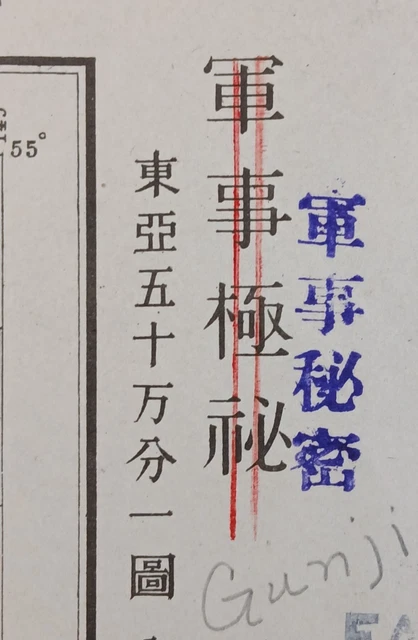 軍事極祕
軍事秘密
東亞五十万分一圖
55°
Gunji